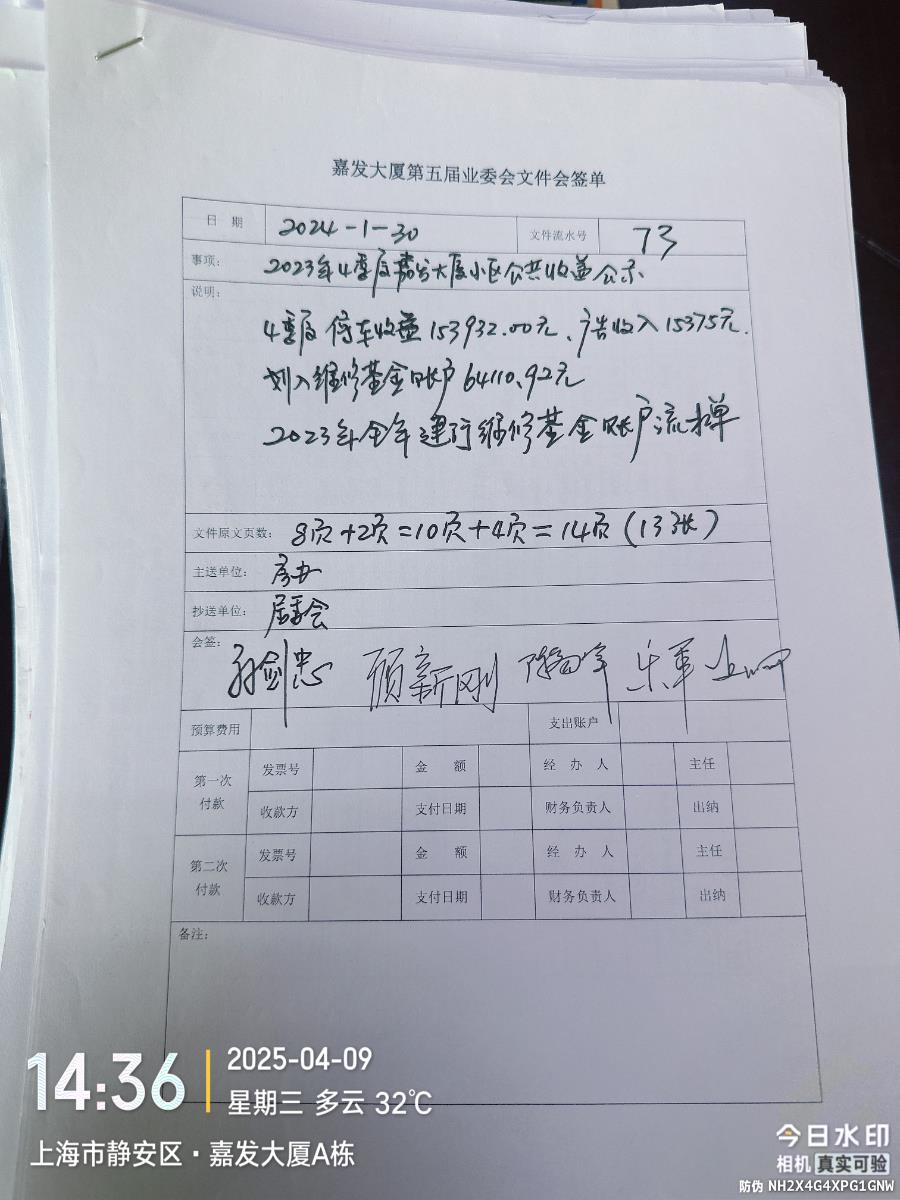 嘉发大厦第五届业委会文件会签单
日 期 2024-1-30 文件流水号 73
事项: 2023年4季度嘉发大厦小区公共收益公示
说明:
4季度停车收益153932.00元、广告收入15375元.
划入维修基金账户64110.92元
2023年全年建行维修基金账户流水单
文件原文页数: 8页+2页=10页+4页=14页(13张)
主送单位: 房办
抄送单位: 居委会
会签: 剑忠 顾新刚 乐军
预算费用 支出账户
第一次付款 发票号 金 额 经 办 人 主任
收款方 支付日期 财务负责人 出纳
第二次付款 发票号 金 额 经 办 人 主任
收款方 支付日期 财务负责人 出纳
备注:
14:36 2025-04-09
星期三 多云 32℃
上海市静安区·嘉发大厦A栋
今日水印
相机 真实可验
防伪 NH2X4G4XPG1GNW